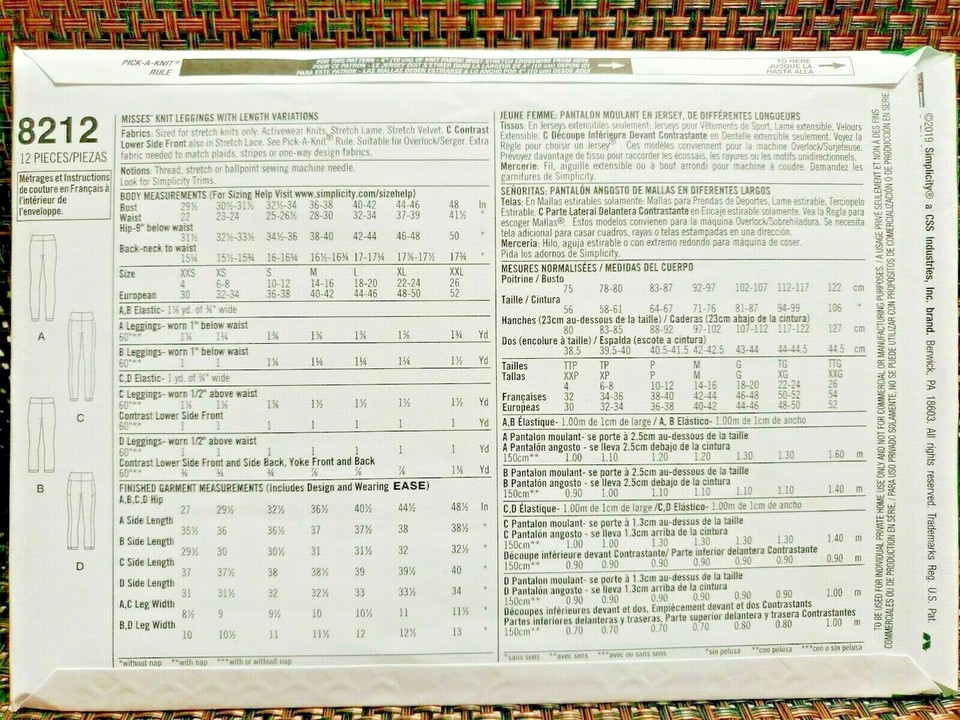 PICK-A-KNIT®
RULE
FOR THIS PATTERN - 4" (10 cm) OF KNIT FABRIC MUST STRETCH CROSSWISE FROM HERE
POUR CE PATRON - LE JERSEY DOIT S'ÉTIRER DANS LA LARGEUR DE 4" (10 cm) DEPUIS ICI
PARA ESTE PATRON - LAS MALLAS DEBEN ESTIRARSE A LO ANCHO POR 4" (10 cm) DESDE AQUÍ
TO HERE
JUSQUE LÀ
HASTA ALLA
8212
12 PIECES/PIEZAS
Métrages et Instructions
de couture en Français à
l'intérieur de
l'enveloppe.
A
C
B
D
MISSES' KNIT LEGGINGS WITH LENGTH VARIATIONS
Fabrics: Sized for stretch knits only. Activewear Knits, Stretch Lame, Stretch Velvet. C Contrast
Lower Side Front also in Stretch Lace. See Pick-A-Knit® Rule. Suitable for Overlock/Serger. Extra
fabric needed to match plaids, stripes or one-way design fabrics.
Notions: Thread, stretch or ballpoint sewing machine needle.
Look for Simplicity Trims.
BODY MEASUREMENTS (For Sizing Help Visit www.simplicity.com/sizehelp)
Bust 29½ 30½-31½ 32½-34 36-38 40-42 44-46 48 In
Waist 22 23-24 25-26½ 28-30 32-34 37-39 41½ "
Hip-9" below waist
31½ 32½-33½ 34½-36 38-40 42-44 46-48 50 "
Back-neck to waist
15¼ 15½-15¾ 16-16¼ 16½-16¾ 17-17¼ 17⅜-17½ 17¾ "
Size XXS XS S M L XL XXL
4 6-8 10-12 14-16 18-20 22-24 26
European 30 32-34 36-38 40-42 44-46 48-50 52
A,B Elastic- 1⅛ yd. of ⅜" wide
A Leggings- worn 1" below waist
60"*** 1⅛ 1¼ 1⅜ 1⅜ 1⅜ 1⅜ 1¾ Yd
B Leggings- worn 1" below waist
60"*** 1 1 1¼ 1¼ 1¼ 1¼ 1½ Yd
C,D Elastic- 1 yd. of ⅜" wide
C Leggings- worn 1/2" above waist
60"*** 1⅛ 1⅛ 1⅜ 1½ 1½ 1½ 1½ Yd
Contrast Lower Side Front
60"*** 1 1 1 1 1 1 1 Yd
D Leggings- worn 1/2" above waist
60"*** 1 1 1 1 1 1 1 Yd
Contrast Lower Side Front and Side Back, Yoke Front and Back
60"*** ¾ ¾ ¾ ⅞ ⅞ ⅞ 1⅛ Yd
FINISHED GARMENT MEASUREMENTS (Includes Design and Wearing EASE)
A,B,C,D Hip
27 29½ 32½ 36½ 40½ 44½ 48½ In
A Side Length
35½ 36 36½ 37 37½ 38 38½ "
B Side Length
29½ 30 30½ 31 31½ 32 32½ "
C Side Length
37 37½ 38 38½ 39 39½ 40 "
D Side Length
31 31½ 32 32½ 33 33½ 34 "
A,C Leg Width
8½ 9 9½ 10 10½ 11 11½ "
B,D Leg Width
10 10½ 11 11½ 12 12½ 13 "
*without nap **with nap ***with or without nap
JEUNE FEMME: PANTALON MOULANT EN JERSEY, DE DIFFÉRENTES LONGUEURS
Tissus: En Jerseys extensibles seulement: Jerseys pour Vêtements de Sport, Lame extensible, Velours
Extensible. C Découpe Inférieure Devant Contrastante en Dentelle extensible seulement. Voyez la
Règle pour choisir un Jersey®. Ces modèles conviennent pour la machine Overlock/Surjeteuse.
Prévoyez davantage de tissu pour raccorder les écossais, les rayures ou les motifs unidirectionnels.
Mercerie: Fil, aiguille extensible ou à bout arrondi pour machine à coudre. Demandez les
garnitures de Simplicity.
SEÑORITAS: PANTALÓN ANGOSTO DE MALLAS EN DIFERENTES LARGOS
Telas: En Mallas estirables solamente: Mallas para Prendas de Deportes, Lame estirable, Terciopelo
Estirable. C Parte Lateral Delantera Contrastante en Encaje estirable solamente. Vea la Regla para
escoger Mallas®. Estos modelos convienen para la máquina Overlock/Sobrehiladora. Se necesita
tela adicional para casar cuadros, rayas o telas estampadas en una dirección.
Mercería: Hilo, aguja estirable o con extremo redondo para máquina de coser.
Pida los adornos de Simplicity.
MESURES NORMALISÉES / MEDIDAS DEL CUERPO
Poitrine / Busto
75 78-80 83-87 92-97 102-107 112-117 122 cm
Taille / Cintura
56 58-61 64-67 71-76 81-87 94-99 106 "
Hanches (23cm au-dessous de la taille) / Caderas (23cm abajo de la cintura)
80 83-85 88-92 97-102 107-112 117-122 127 cm
Dos (encolure à taille) / Espalda (escote a cintura)
38.5 39.5-40 40.5-41.5 42-42.5 43-44 44-44.5 44.5 cm
Tailles TTP TP P M G TG TTG
Tallas XXP XP P M G XG XXG
4 6-8 10-12 14-16 18-20 22-24 26
Françaises 32 34-36 38-40 42-44 46-48 50-52 54
Europeas 30 32-34 36-38 40-42 44-46 48-50 52
A,B Élastique- 1.00m de 1cm de large / A, B Elástico- 1.00m de 1cm de ancho
A Pantalon moulant- se porte à 2.5cm au-dessous de la taille
A Pantalón angosto- se lleva 2.5cm debajo de la cintura
150cm** 1.00 1.10 1.20 1.20 1.30 1.30 1.60 m
B Pantalon moulant- se porte à 2.5cm au-dessous de la taille
B Pantalón angosto- se lleva 2.5cm debajo de la cintura
150cm** 0.90 1.00 1.10 1.10 1.10 1.10 1.40 m
C,D Élastique- 1.00m de 1cm de large /C,D Elástico- 1.00m de 1cm de ancho
C Pantalon moulant- se porte à 1.3cm au-dessus de la taille
C Pantalón angosto- se lleva 1.3cm arriba de la cintura
150cm** 1.00 1.00 1.30 1.30 1.30 1.30 1.40 m
Découpe inférieure devant Contrastante/ Parte inferior delantera Contrastante
150cm** 0.90 0.90 0.90 0.90 0.90 0.90 0.90 m
D Pantalon moulant- se porte à 1.3cm au-dessus de la taille
D Pantalón angosto- se lleva 1.3cm arriba de la cintura
150cm** 0.90 0.90 0.90 0.90 0.90 0.90 1.00 m
Découpes inférieures devant et dos, Empiècement devant et dos Contrastants
Partes inferiores delanteras y traseras, Parte superior delantera y trasera Contrastantes
150cm** 0.70 0.70 0.70 0.70 0.80 0.80 1.00 m
*sans sens **avec sens ***avec ou sans sens *sin pelusa **con pelusa ***con o sin pelusa
TO BE USED FOR INDIVIDUAL PRIVATE HOME USE ONLY AND NOT FOR COMMERCIAL OR MANUFACTURING PURPOSES. / A USAGE PRIVÉ SEULEMENT ET NON À DES FINS
COMMERCIALES OU DE PRODUCTION EN SÉRIE. / PARA USO PRIVADO SOLAMENTE, NO SE PUEDE UTILIZAR CON PROPÓSITOS DE COMERCIALIZACIÓN O DE PRODUCCIÓN EN SERIE.
©2019 Simplicity® a CSS Industries, Inc. brand. Berwick, PA 18603. All rights reserved. Trademarks Reg. U.S. Pat.